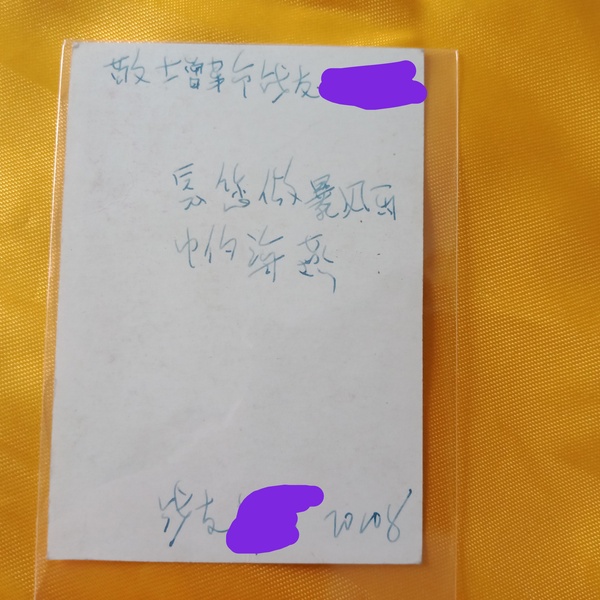 敬增革命战友
愿您做暴风雨
中的海燕
战友 70108